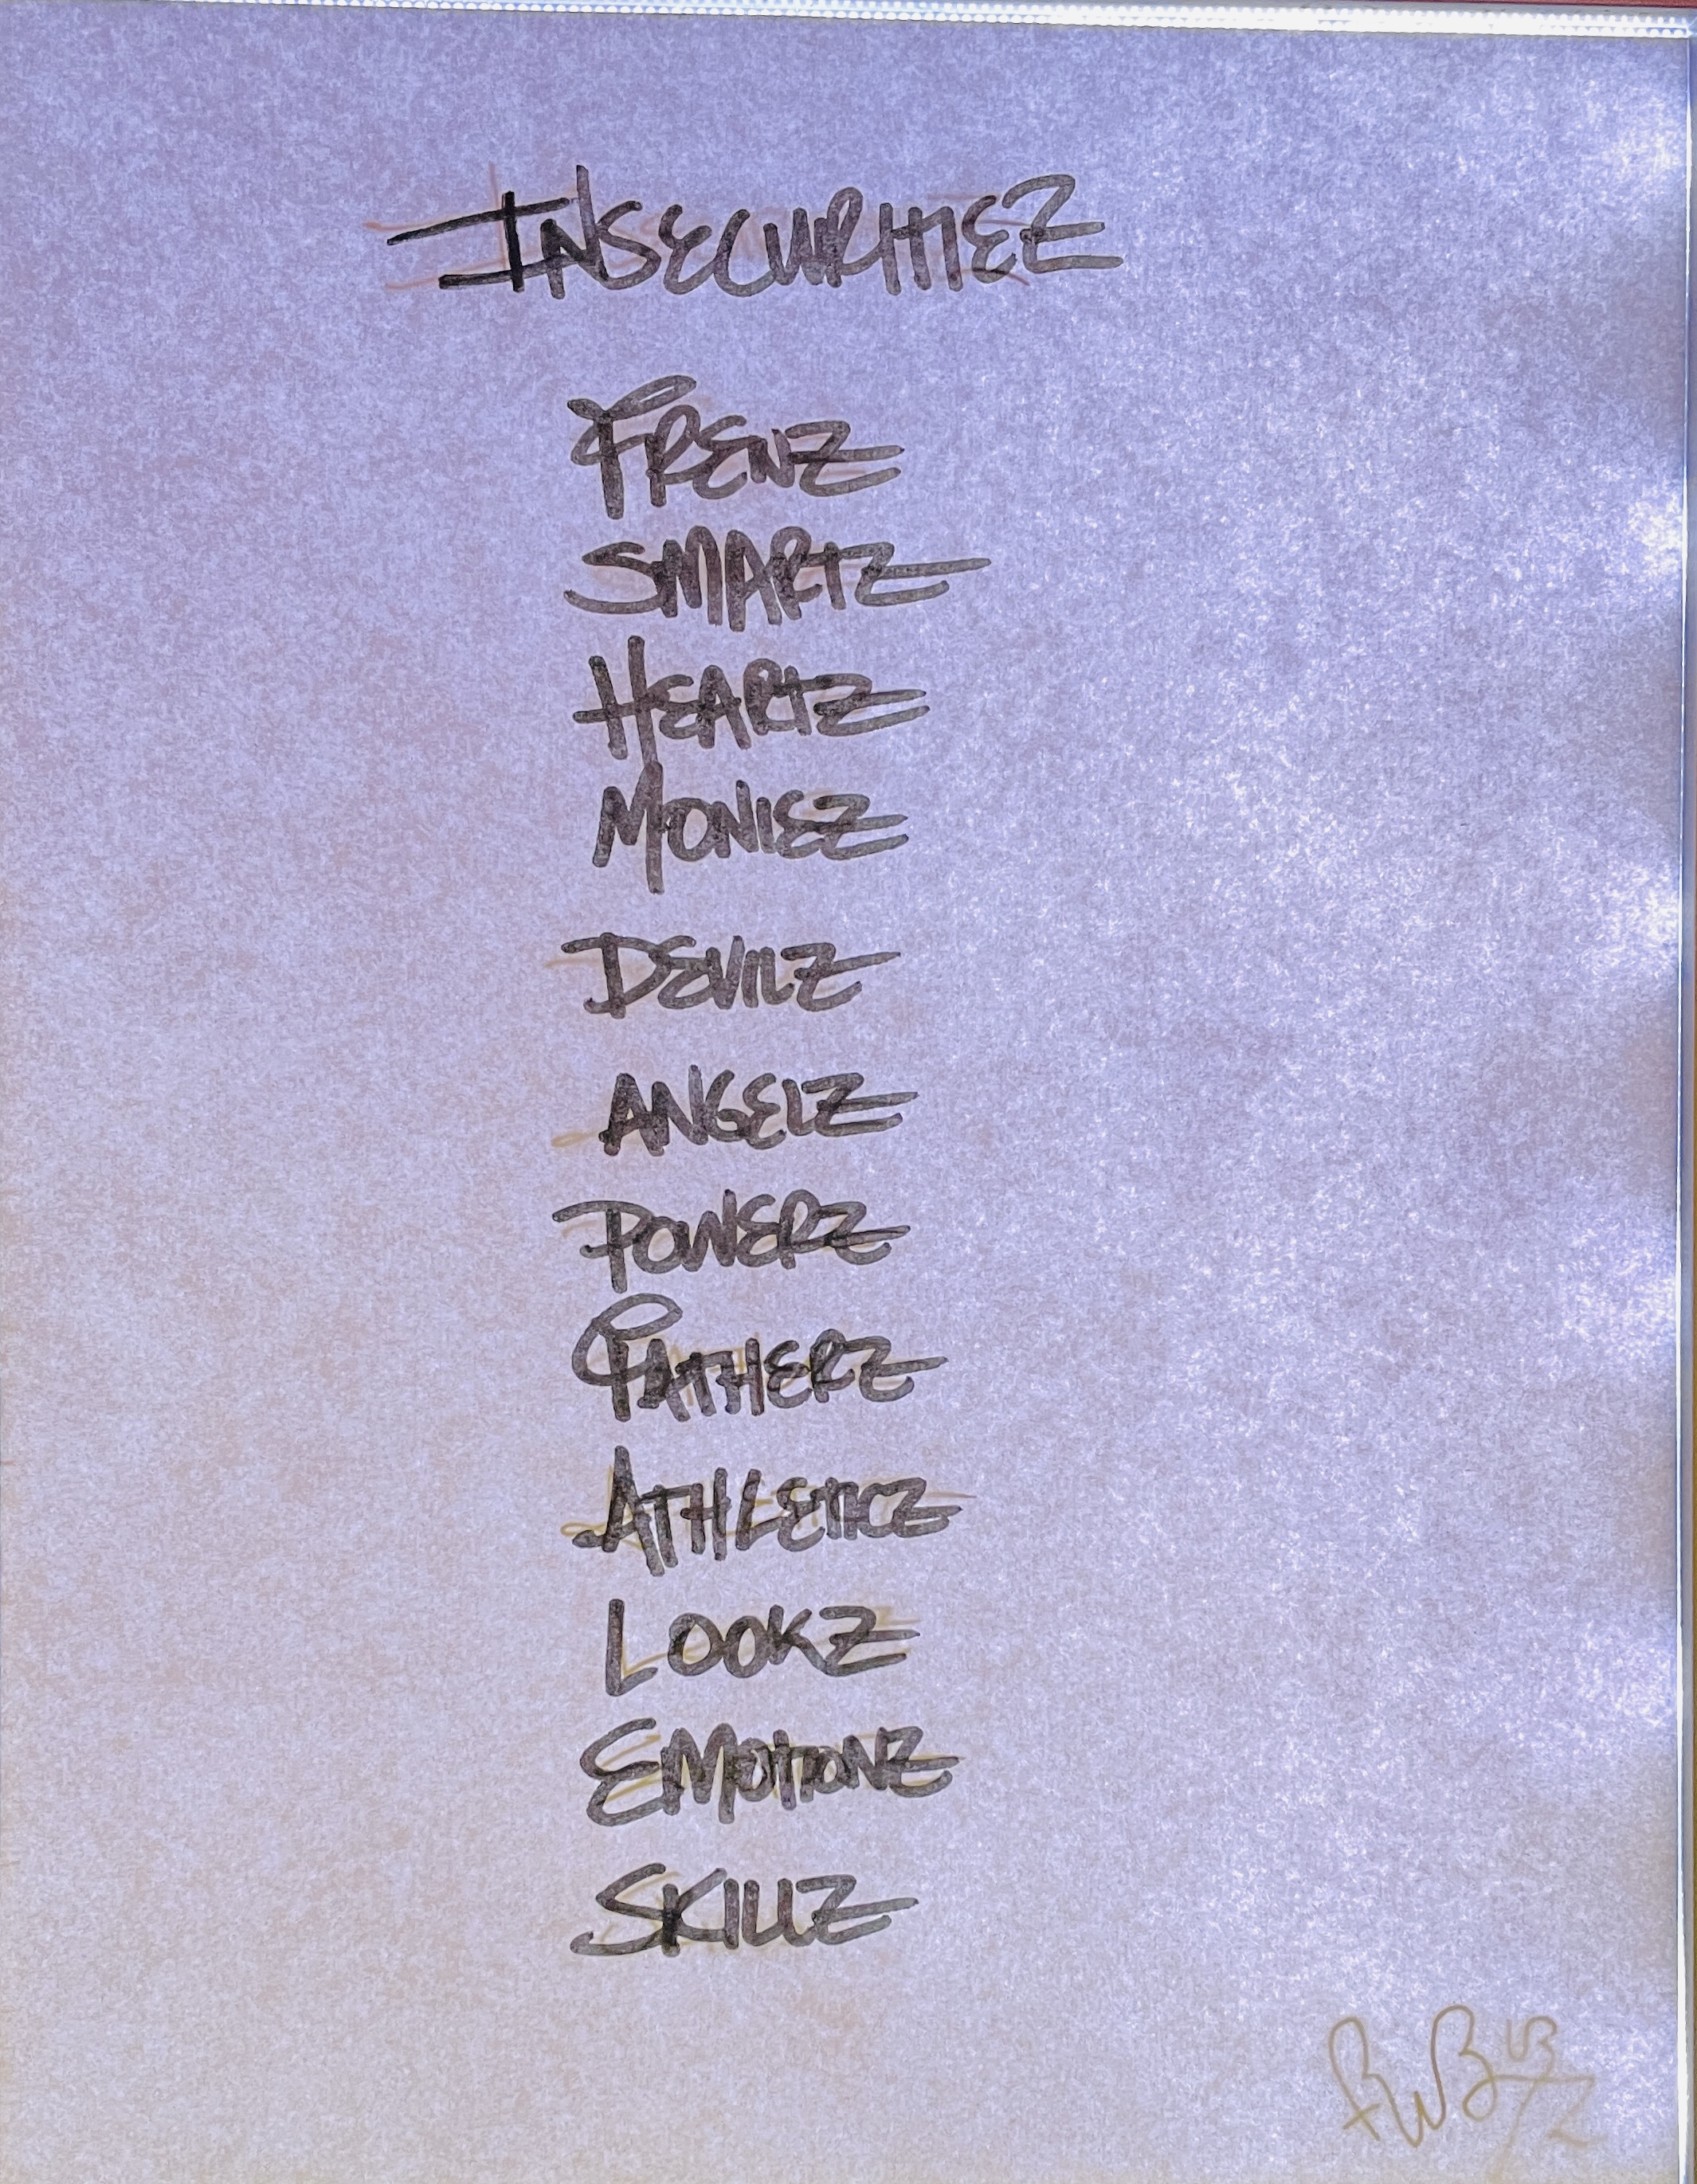 INSECURITIEZ
FRENZ
SMARTZ
HEARTZ
MONIEZ
DEVILZ
ANGELZ
POWERZ
FATHERZ
ATHLETICZ
LOOKZ
EMOTIONZ
SKILLZ